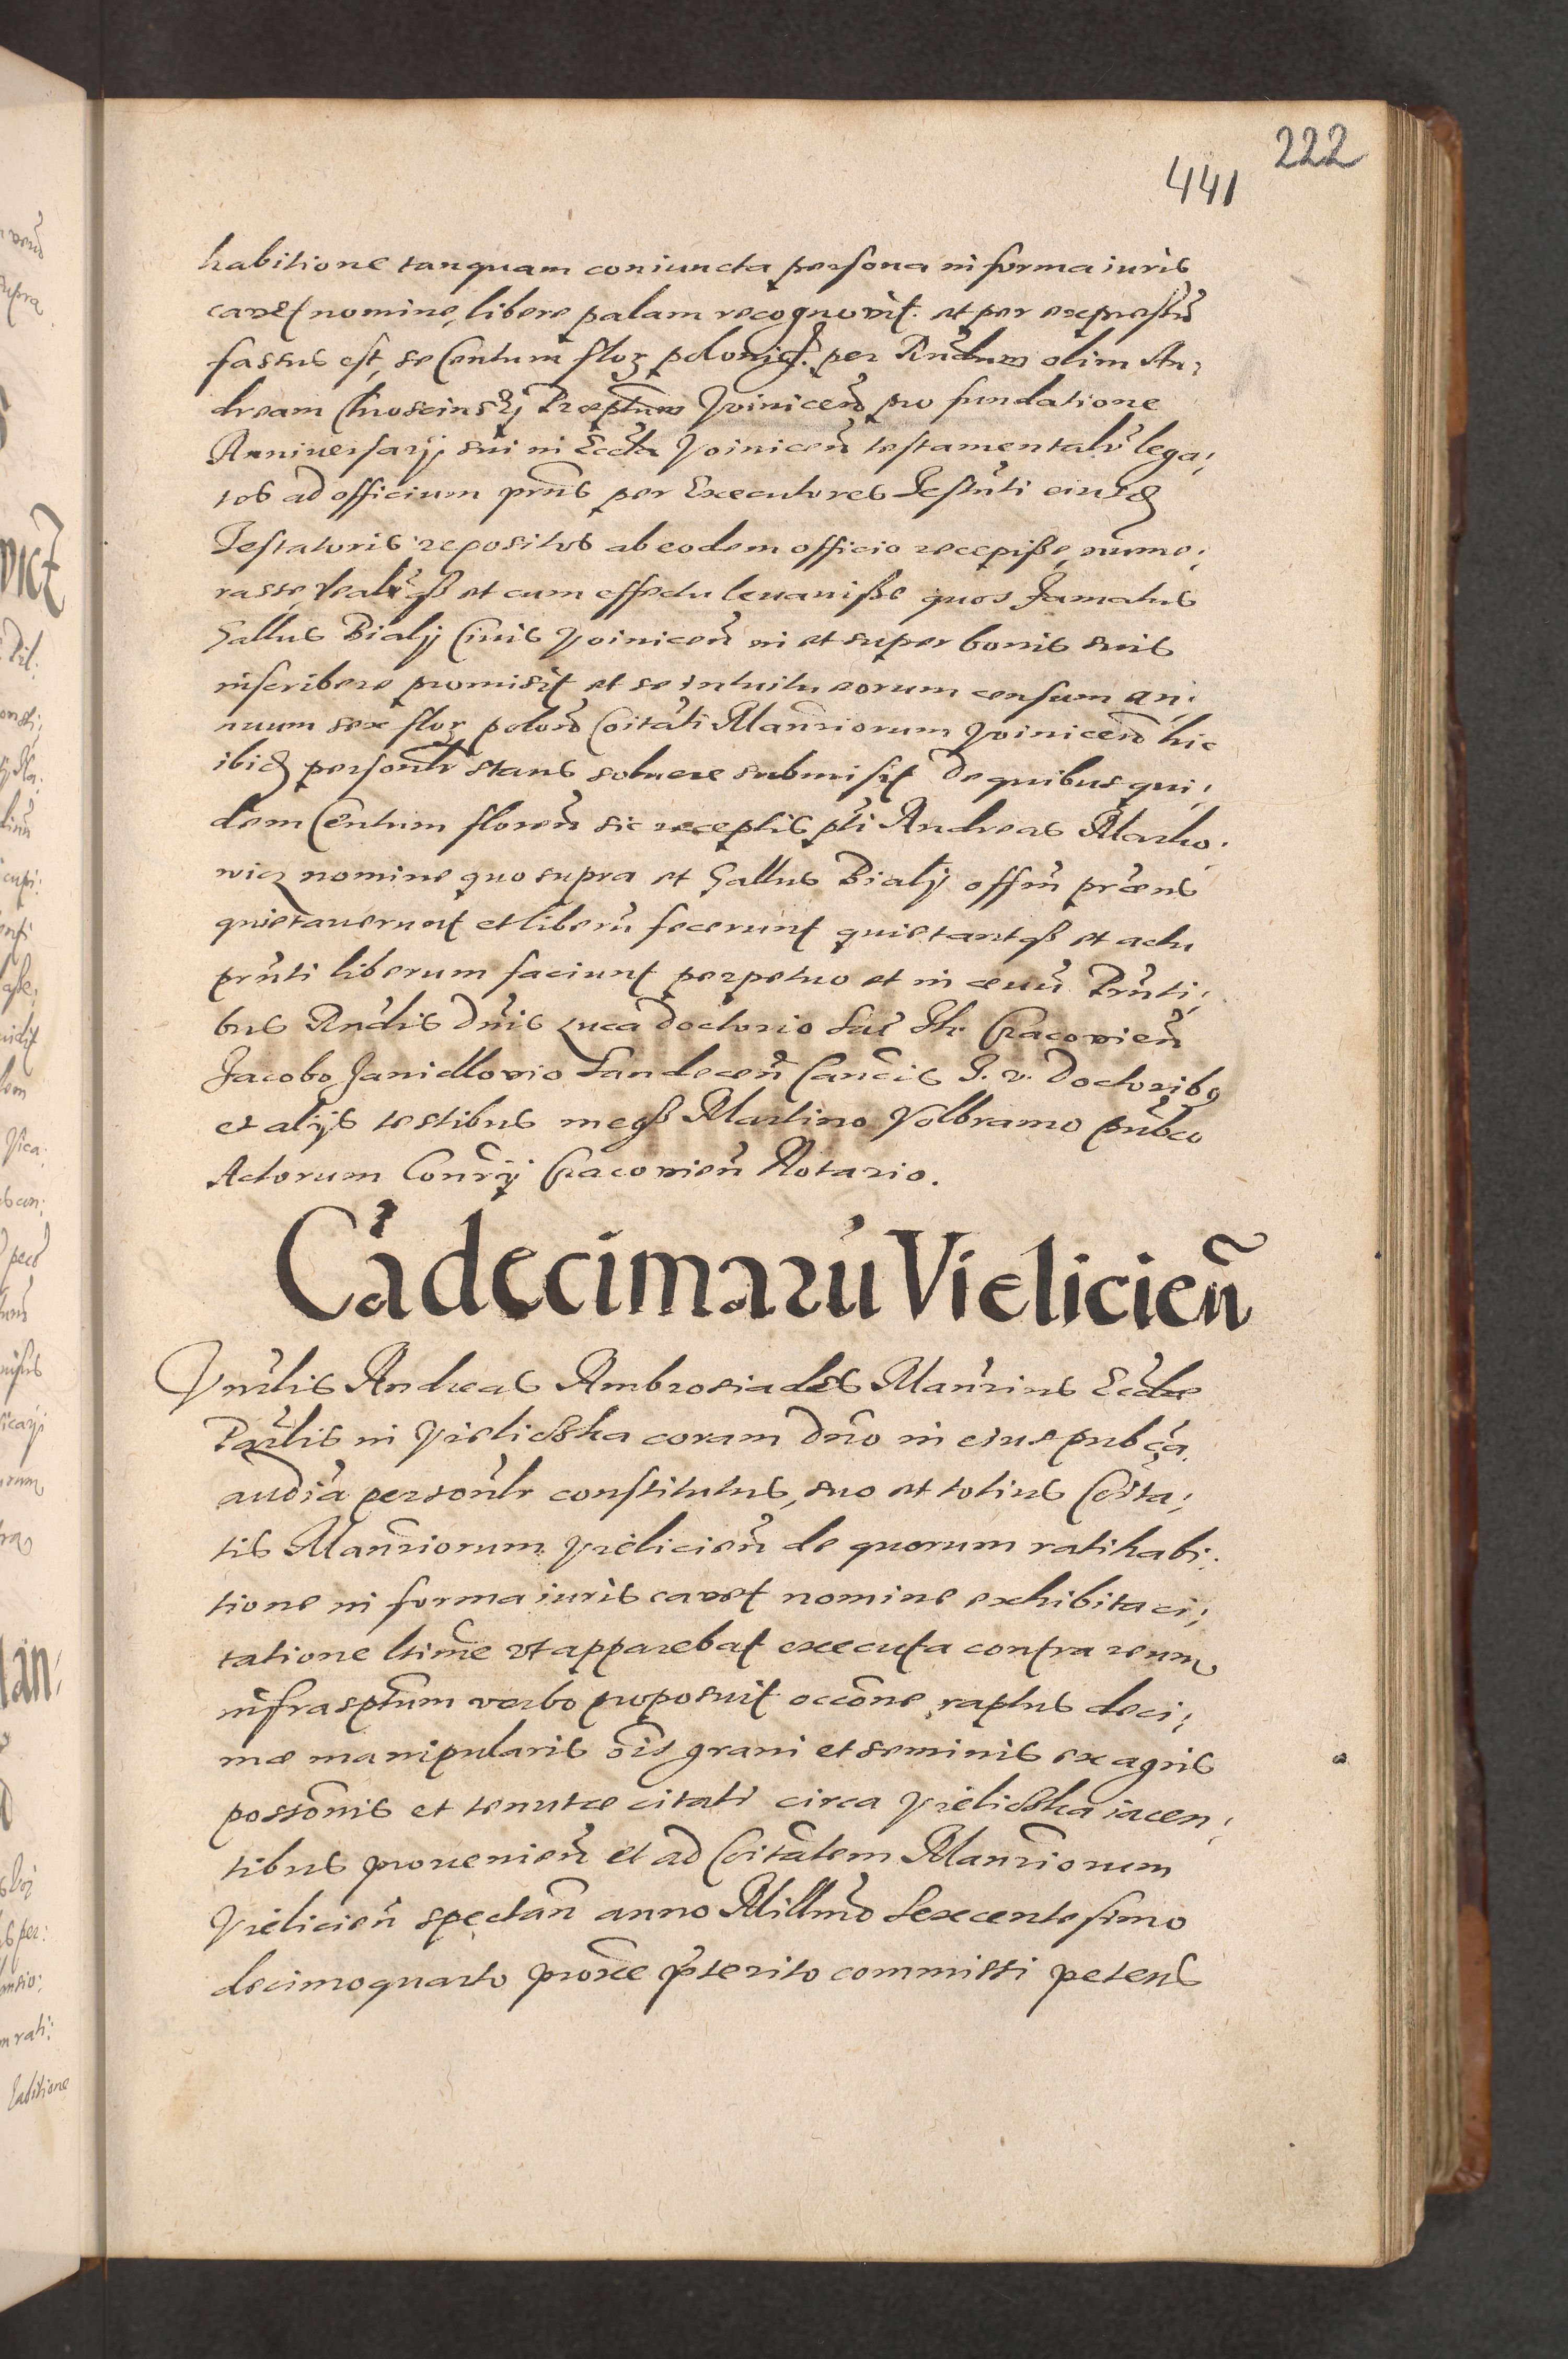 222
441
habitione tanquam coniuncta persona in forma iuris
cavet nomine, libere palam recognovit et per expressũ
fassus est, se Centum flor polonic. per Rñdum olim An,
dream Chroscinsky Præptum Voinicen̄ pro fundatione
Anniversarij sui in Eccła Voinicen̄ testamentalr̃ lega,
tos ad officium prñs per Executores Testñti eiusd
Testatoris repositos ab eodem officio recepiße, nume,
rasse realrq et cum effectu levaviße quos famatus
Gallus Bialy Civis Voinicen̄ in et super bonis suis
inscribere promisit et se intuitu eorum censum an,
nuum sex flor polon̄ Cõitati Mañriorum Voinicen̄ hic
ibid personlr stans solvere submisit De quibus qui,
dem Centum floren̄ sic receptis pti Andreas Marko,
wicz nomine quo supra et Gallus Bialy offm̄ præns
quietaverunt et liberũ fecerunt quietantq et actu
prñti liberum faciunt perpetuo et in ævũ Prñti,
bus Rñdis Dñis Luca Doctorio Sac̃ Th. Cracovien̄
Jacobo Janidlovio Sandecen̄ Canc̃is J. v. Doctoribq
et alijs testibus meq Martino Volbramo publco
Actorum Conrij Cracovien̄ Notario.
Cã decimarũ Vielicien̄
Vnrlis Andreas Ambrosiades Mañrius Ecclæ
Parlis in Vielicska coram Dño in eius publca
audia personlr constitutus, suo et totius Cõita,
tis Mañriorum Vielicien̄ de quorum ratihabi,
tione in forma iuris cavet nomine exhibita ci,
tatione ltime vt apparebat executa contra reum
infrasptum verbo proposuit occõne raptus deci,
mæ manipularis õis grani et seminis ex agris
possõnis et tenutæ citati circa Vielicska iacen,
tibus provenien̄ et ad Cõitatem Mañriorum
Vielicien̄ spectan̄ anno Millmo Sexcentesimo
decimoquarto proxe pterito commissi petens